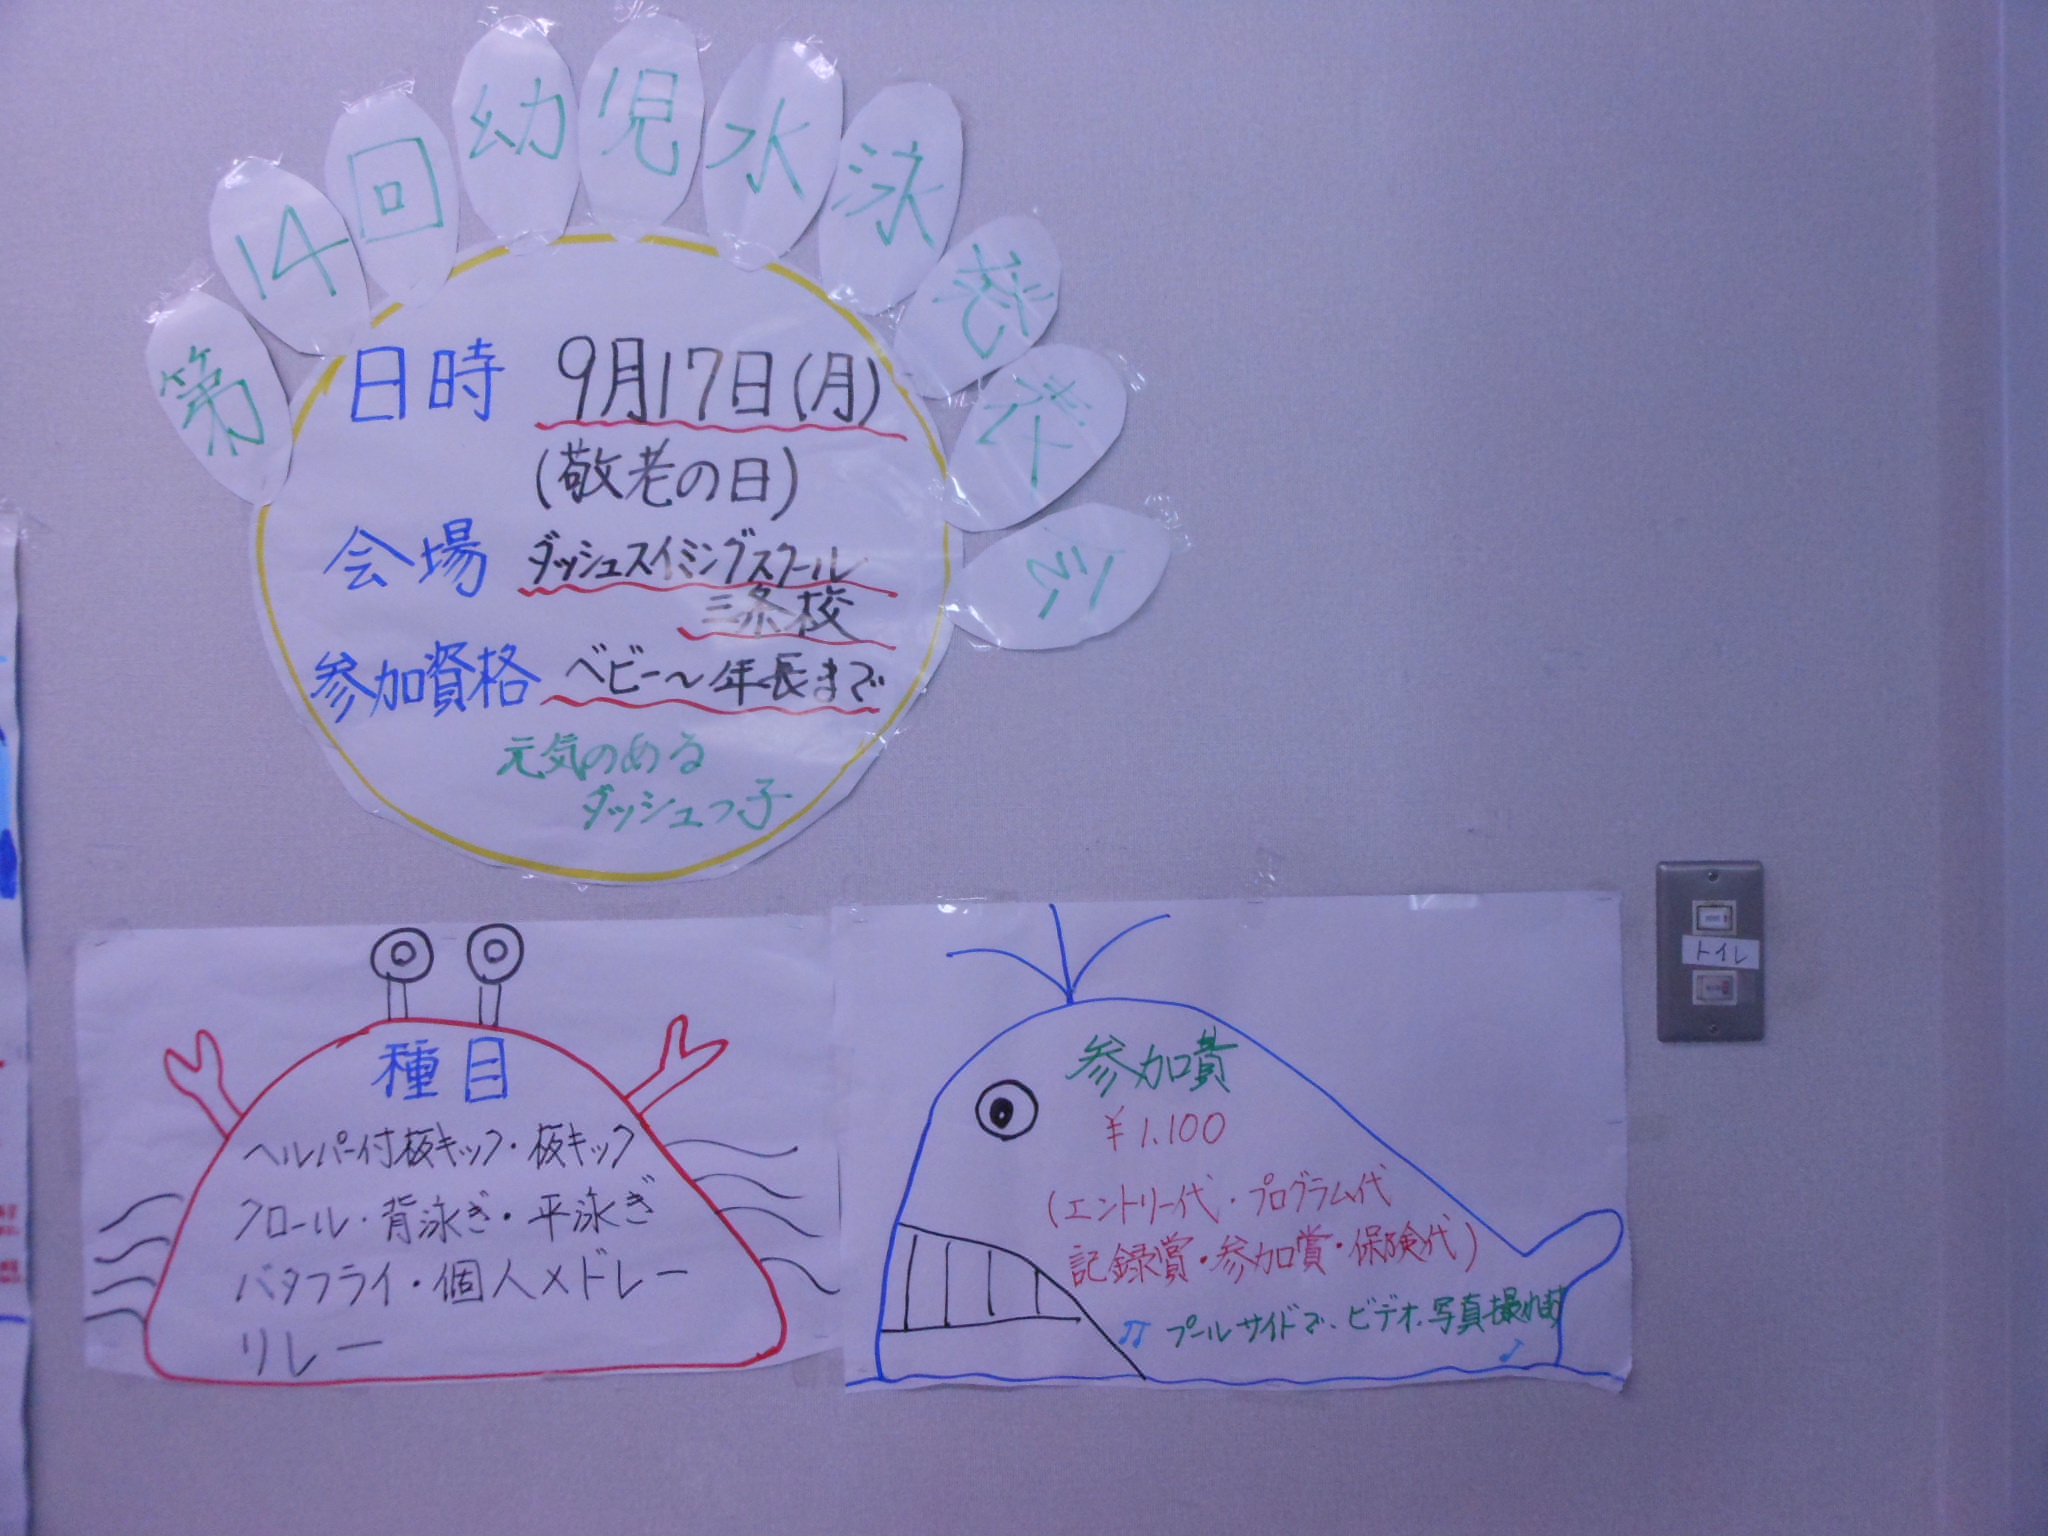 第14回幼児水泳発表会
日時 9月17日(月)
(敬老の日)
会場 ダッシュスイミングスクール
三条校
参加資格 ベビー〜年長まで
元気のある
ダッシュっ子
種目
ヘルパー付板キック・板キック
クロール・背泳ぎ・平泳ぎ
バタフライ・個人メドレー
リレー
参加費
¥1.100
(エントリー代・プログラム代
記録賞・参加賞・保険代)
♫ プールサイドで、ビデオ、写真撮れます
♪
トイレ